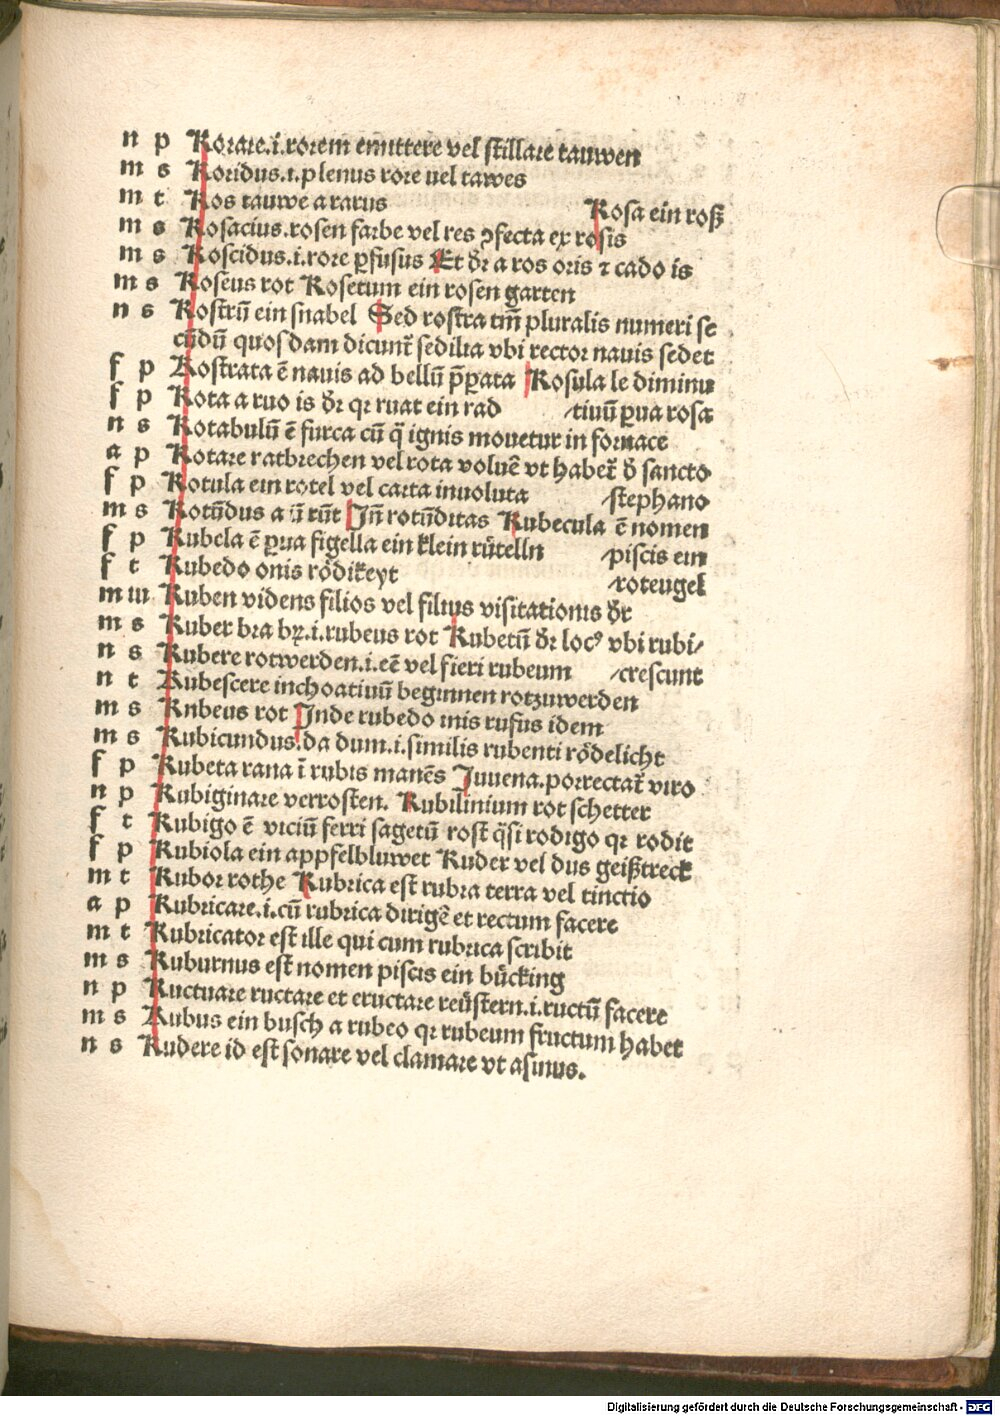 n p Rorare.i.rorem emittere vel stillare tauwen
m s Roridus.i.plenus rore uel tawes
m t Ros tauwe a rarus Rosa ein roß
m s Rosacius.rosen farbe vel res ꝯfecta ex rosis
m s Roscidus.i.rore ꝑfusus Et dr̄ a ros oris ⁊ cado is
m s Roseus rot Rosetum ein rosen garten
n s Rostrū ein snabel Sed rostra tm̄ pluralis numeri se
cūdū quosdam dicunt᷑ sedilia vbi rector nauis sedet
f p Rostrata ē nauis ad bellū p̄ꝑata Rosula le diminu
f p Rota a ruo is dr̄ qꝛ ruat ein rad /tiuū ꝑua rosa
n s Rotabulū ē furca cū q̄ ignis mouetur in fornace
a p Rotare ratbrechen vel rota voluē vt habet᷑ d̄ sancto
f p Rotula ein rotel vel carta inuoluta /stephano
m s Rotūdus a ū rūt Jn̄ rotūditas Rubecula ē nomen
f p Rubela ē ꝑua figella ein klein rütelln /piscis ein
f t Rubedo onis rödikeyt /roteugel
m iii Ruben videns filios vel filius visitationis dr̄
m s Ruber bra bꝝ.i.rubeus rot Rubetū dr̄ locꝰ vbi rubi/
n s Rubere rotwerden.i.eē vel fieri rubeum /crescunt
n t Rubescere inchoatiuū beginnen rotzuwerden
m s Rnbeus rot Jnde rubedo inis rufus idem
m s Rubicundus.da dum.i.similis rubenti rödelicht
f p Rubeta rana ī rubis manēs Juuena.porrectat᷑ viro
n p Rubiginare verrosten. Rubilinium rot schetter
f t Rubigo ē viciū ferri sagetū rost q̄si rodigo qꝛ rodit
f p Rubiola ein appfelbluwet Ruder vel dus geißtreck
m t Rubor rothe Rubrica est rubra terra vel tinctio
a p Rubricare.i.cū rubrica dirigē et rectum facere
m t Rubricator est ille qui cum rubrica scribit
m s Ruburnus est nomen piscis ein bücking
n p Ructuare ructare et eructare reüstern.i.ructū facere
m s Rubus ein busch a rubeo qꝛ rubeum fructum habet
n s Rudere id est sonare vel clamare vt asinus.
Digitalisierung gefördert durch die Deutsche Forschungsgemeinschaft - DFG